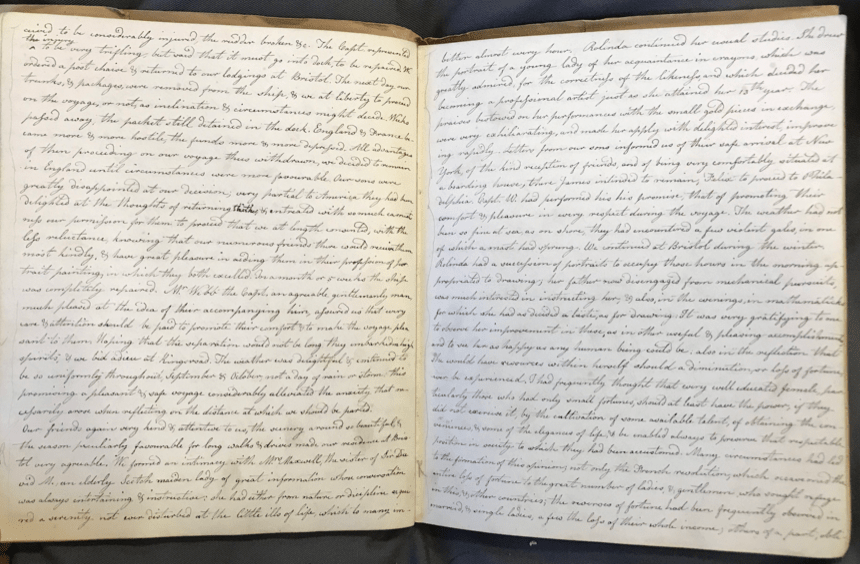 ceived to be considerably injured the rudder broken &c. The Capt. represented
the injury
to be very trifling but said that it must go into dock to be repaired. We
ordered a post chaise & returned to our lodgings at Bristol. The next day our
trunks, & packages, were removed from the ship, & we at liberty to proceed
on the voyage, or not as inclination & circumstances might decide. Weeks
passed away, the packet still detained in the dock. England & France be
came more & more hostile, the funds more & more depressed. All advantages
of then proceeding on our voyage thus withdrawn, we decided to remain
in England until circumstances were more favourable. Our sons were
greatly disappointed at our decision; very partial to America they had been
delighted at the thoughts of returning & intreated with so much earnest
ness our permission for them to proceed that we at length consented, with the
less reluctance, knowing that our numerous friends there would receive them
most kindly, & have great pleasure in aiding them in their profession of por
trait painting, in which they both excelled. In a month or 5 weeks the ship
was completely repaired. Mr. Webb the Capt. an agreeable gentlemanly man,
much pleased at the idea of their accompanying him, assured us that every
care & attention should be paid to promote their comfort & to make the voyage plea
sant to them. Hoping that the separation would not be long they embarked in high
spirits, & we bid adieu at Kingroad. The weather was delightful & continued to
be so uniformly throughout September & October, not a day of rain or storm. this
promising a pleasant & safe voyage considerably alleviated the anxiety that ne
cessarily arose when reflecting on the distance at which we should be parted.
Our friends again very kind & attentive to us, the scenery around so beautiful &
the season peculiarly favourable for long walks & drives made our residence at Bris
tol very agreeable. We formed an intimacy with Mrs. Maxwell, the sister of Sir Da
vid M. an elderly Scotch maiden lady, of great information whose conversation
was always entertaining & instructive; she had either from nature or discipline acqui
red a serenity not ever disturbed at the little ills of life, which to many oc
better almost every hour. Rolinda continued her usual studies. She drew
the portrait of a young lady of her acquaintance in crayons, which was
greatly admired, for the correctness of the likeness, and which decided her
becoming a professional artist just as she attained her year. The
praises bestowed on her performances with the small gold pieces in exchange,
were very exhilarating, and made her apply with delighted interest, improv
ing rapidly. Letters from our sons informed us of their safe arrival at New
York, of the kind reception of friends, and of being very comfortably situated at
a boarding house; there James intended to remain, Felix to proceed to Phila-
delphia. Capt. W. had performed his his promise, that of promoting their
comfort & pleasure in every respect during the voyage. The weather had not
been so fine at sea, as on shore, they had encountered a few violent gales, in one
of which a mast had sprung. We continued at Bristol during the winter.
Rolinda had a succession of portraits to occupy those hours in the morning ap
propriated to drawing; her father now disengaged from mechanical pursuits,
was much interested in instructing her, & also, in the evenings, in mathematicks
for which she had as decided a taste, as for drawing. It was very gratifying to me
to observe her improvement in these, as in other useful & pleasing accomplishments
and to see her as happy as any human being could be, also in the reflection that
she would have resources within herself should a diminution, or loss of fortune,
ever be experienced. I had frequently thought that every well educated female, par
ticularly those who had only small fortunes, should at least have the power, if they
did not exercise it, by the cultivation of some available talent, of obtaining the con
veniences, & some of the elegances of life, & be enabled always to preserve that respectable
position in society to which they had been accustomed. Many circumstances had led
to the formation of this opinion; not only the French revolution, which occasioned the
entire loss of fortune to the great number of ladies, & gentlemen who sought refuge
in this, & other countries; the reverses of fortune had been frequently observed in
married, & single ladies, a few the loss of their whole income; others of a part,